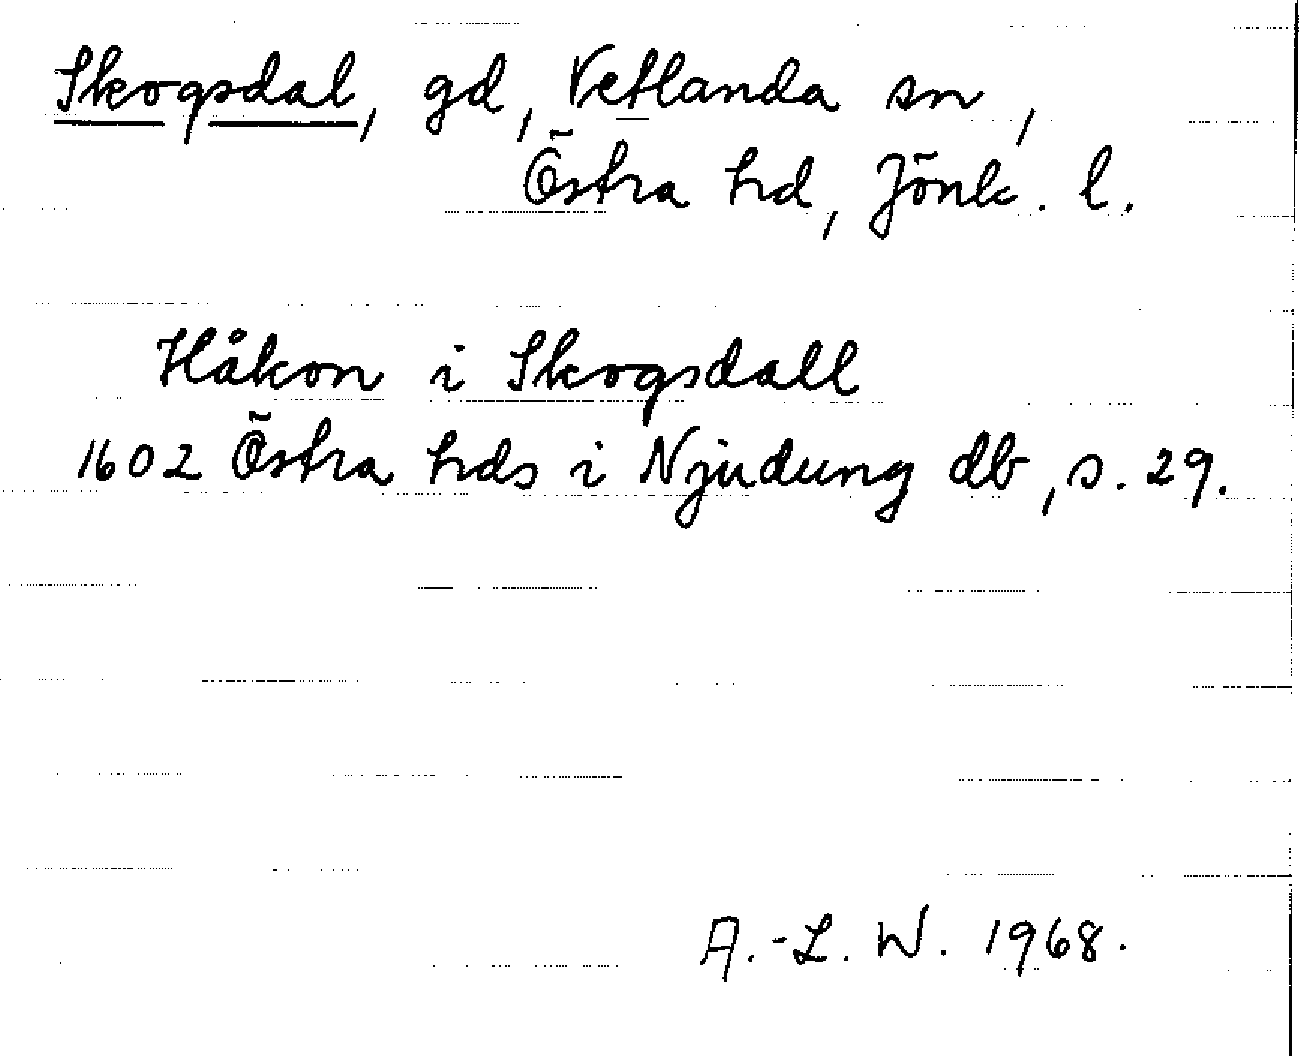 Skogsdal, gd, Vetlanda sn,
Östra hd, Jönk. l.
Håkon i Skogsdall
1602 Östra hds i Njudung db, s. 29.
A.-L. W. 1968.